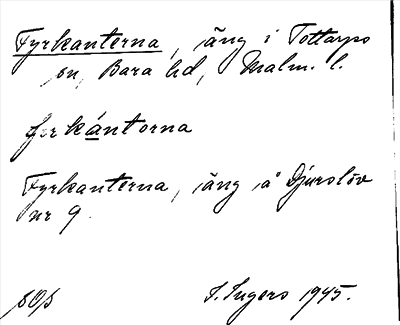 Fyrkanterna, äng i Tottarps
sn, Bara hd, Malm. l.
fyrkántorna
Fyrkanterna, äng å Djurslöv
nr 9.
I. Ingers 1945.